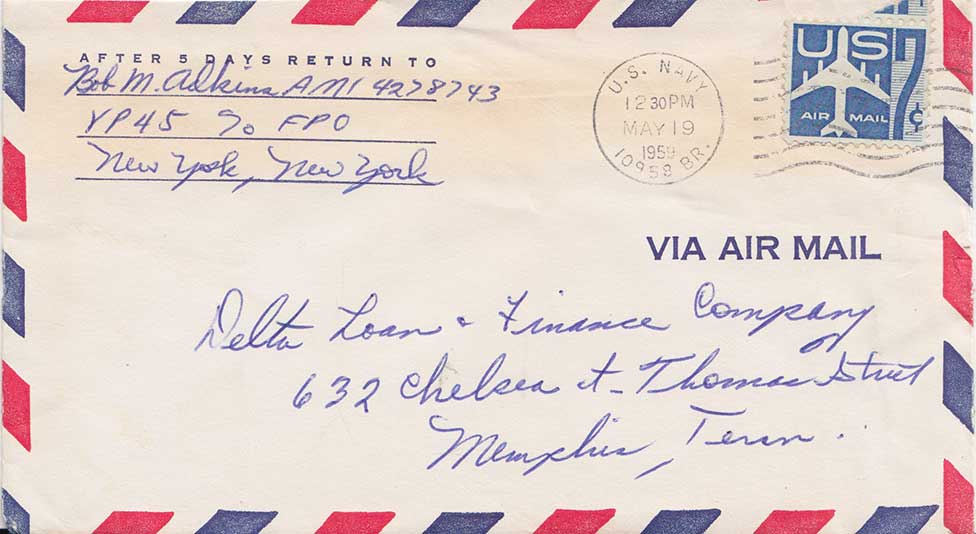 AFTER 5 DAYS RETURN TO
Bob M. Adkins AM1 4278743
VP45 c/o FPO
New York, New York
U.S. NAVY
12 30 PM
MAY 19
1959
10958 BR.
US
7¢
AIR MAIL
VIA AIR MAIL
Delta Loan & Finance Company
632 Chelsea at Thomas Street
Memphis, Tenn.